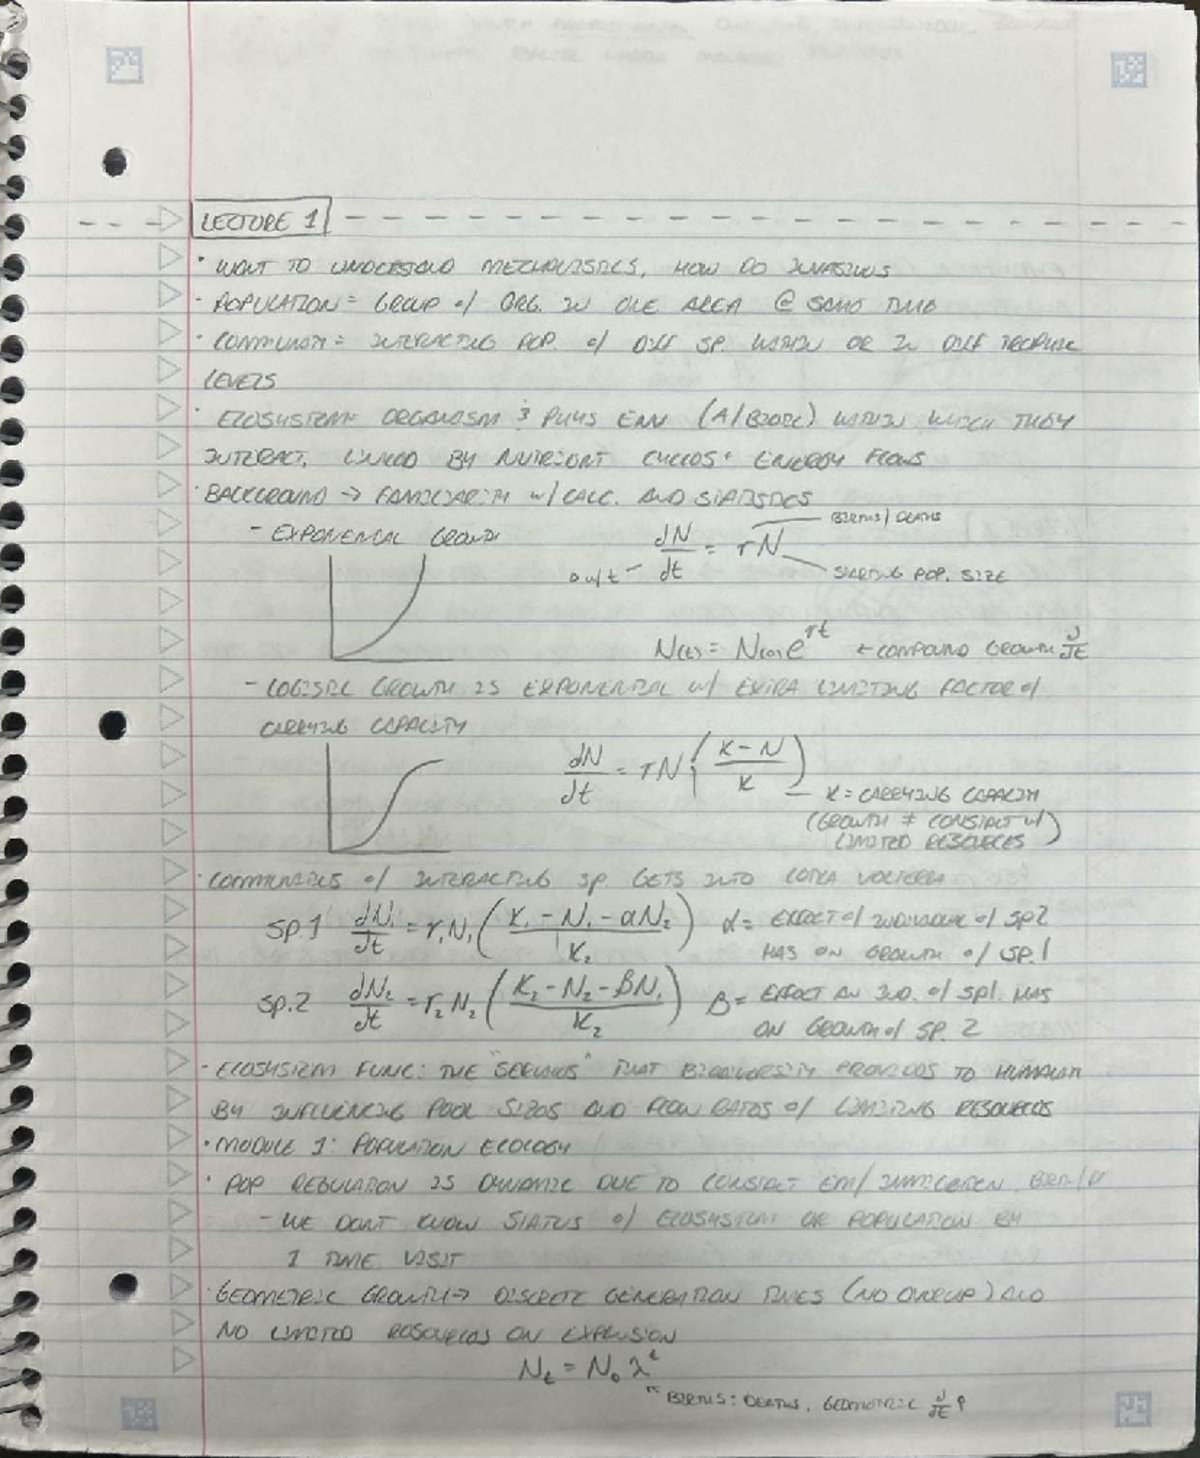 LECTURE 1
· WANT TO UNDERSTAND MECHANISTICS, HOW DO INVASIONS
- POPULATION = GROUP o/ ORG. IN ONE AREA @ SAME TIME
· COMMUNITY = INTERACTING POP. o/ DIFF SP. WITHIN OR IN DIFF TROPHIC
LEVELS
· ECOSYSTEM = ORGANISM & PHYS ENV (A/BIOTIC) WITHIN WHICH THEY
INTERACT, LINKED BY NUTRIENT CYCLES + ENERGY FLOWS
· BACKGROUND → FAMILIARITY w/ CALC. AND STATISTICS
- EXPONENTIAL GROWTH
dN/dt = rN
BIRTHS/DEATHS
Δ w/t
STARTING POP. SIZE
N(t) = N(0)e^rt ← COMPOUND GROWTH
- LOGISTIC GROWTH IS EXPONENTIAL w/ EXTRA LIMITING FACTOR o/
CARRYING CAPACITY
dN/dt = rN (K-N/K)
K = CARRYING CAPACITY
(GROWTH ≠ CONSTANT w/
LIMITED RESOURCES)
· COMMUNITIES o/ INTERACTING SP. GETS INTO LOTKA VOLTERRA
SP.1 dN₁/dt = r₁N₁(K₁-N₁-αN₂/K₂) α = EFFECT o/ INDIVIDUAL o/ SP2
HAS ON GROWTH o/ SP.1
SP.2 dN₂/dt = r₂N₂(K₂-N₂-βN₁/K₂) β = EFFECT AN IND. o/ SP1. HAS
ON GROWTH o/ SP. 2
- ECOSYSTEM FUNC: THE "SERVICES" THAT BIODIVERSITY PROVIDES TO HUMANITY
BY INFLUENCING POOL SIZES AND FLOW RATES o/ LIMITING RESOURCES
· MODULE 1: POPULATION ECOLOGY
· POP REGULATION IS DYNAMIC DUE TO CONSTANT EM/IMMIGRATION,
- WE DONT KNOW STATUS o/ ECOSYSTEM OR POPULATION BY
1 TIME VISIT
· GEOMETRIC GROWTH → DISCRETE GENERATION TIMES (NO OVERLAP) AND
NO LIMITED RESOURCES ON EXPANSION
Nₜ = N₀λᵗ
BIRTHS: DEATHS, GEOMETRIC